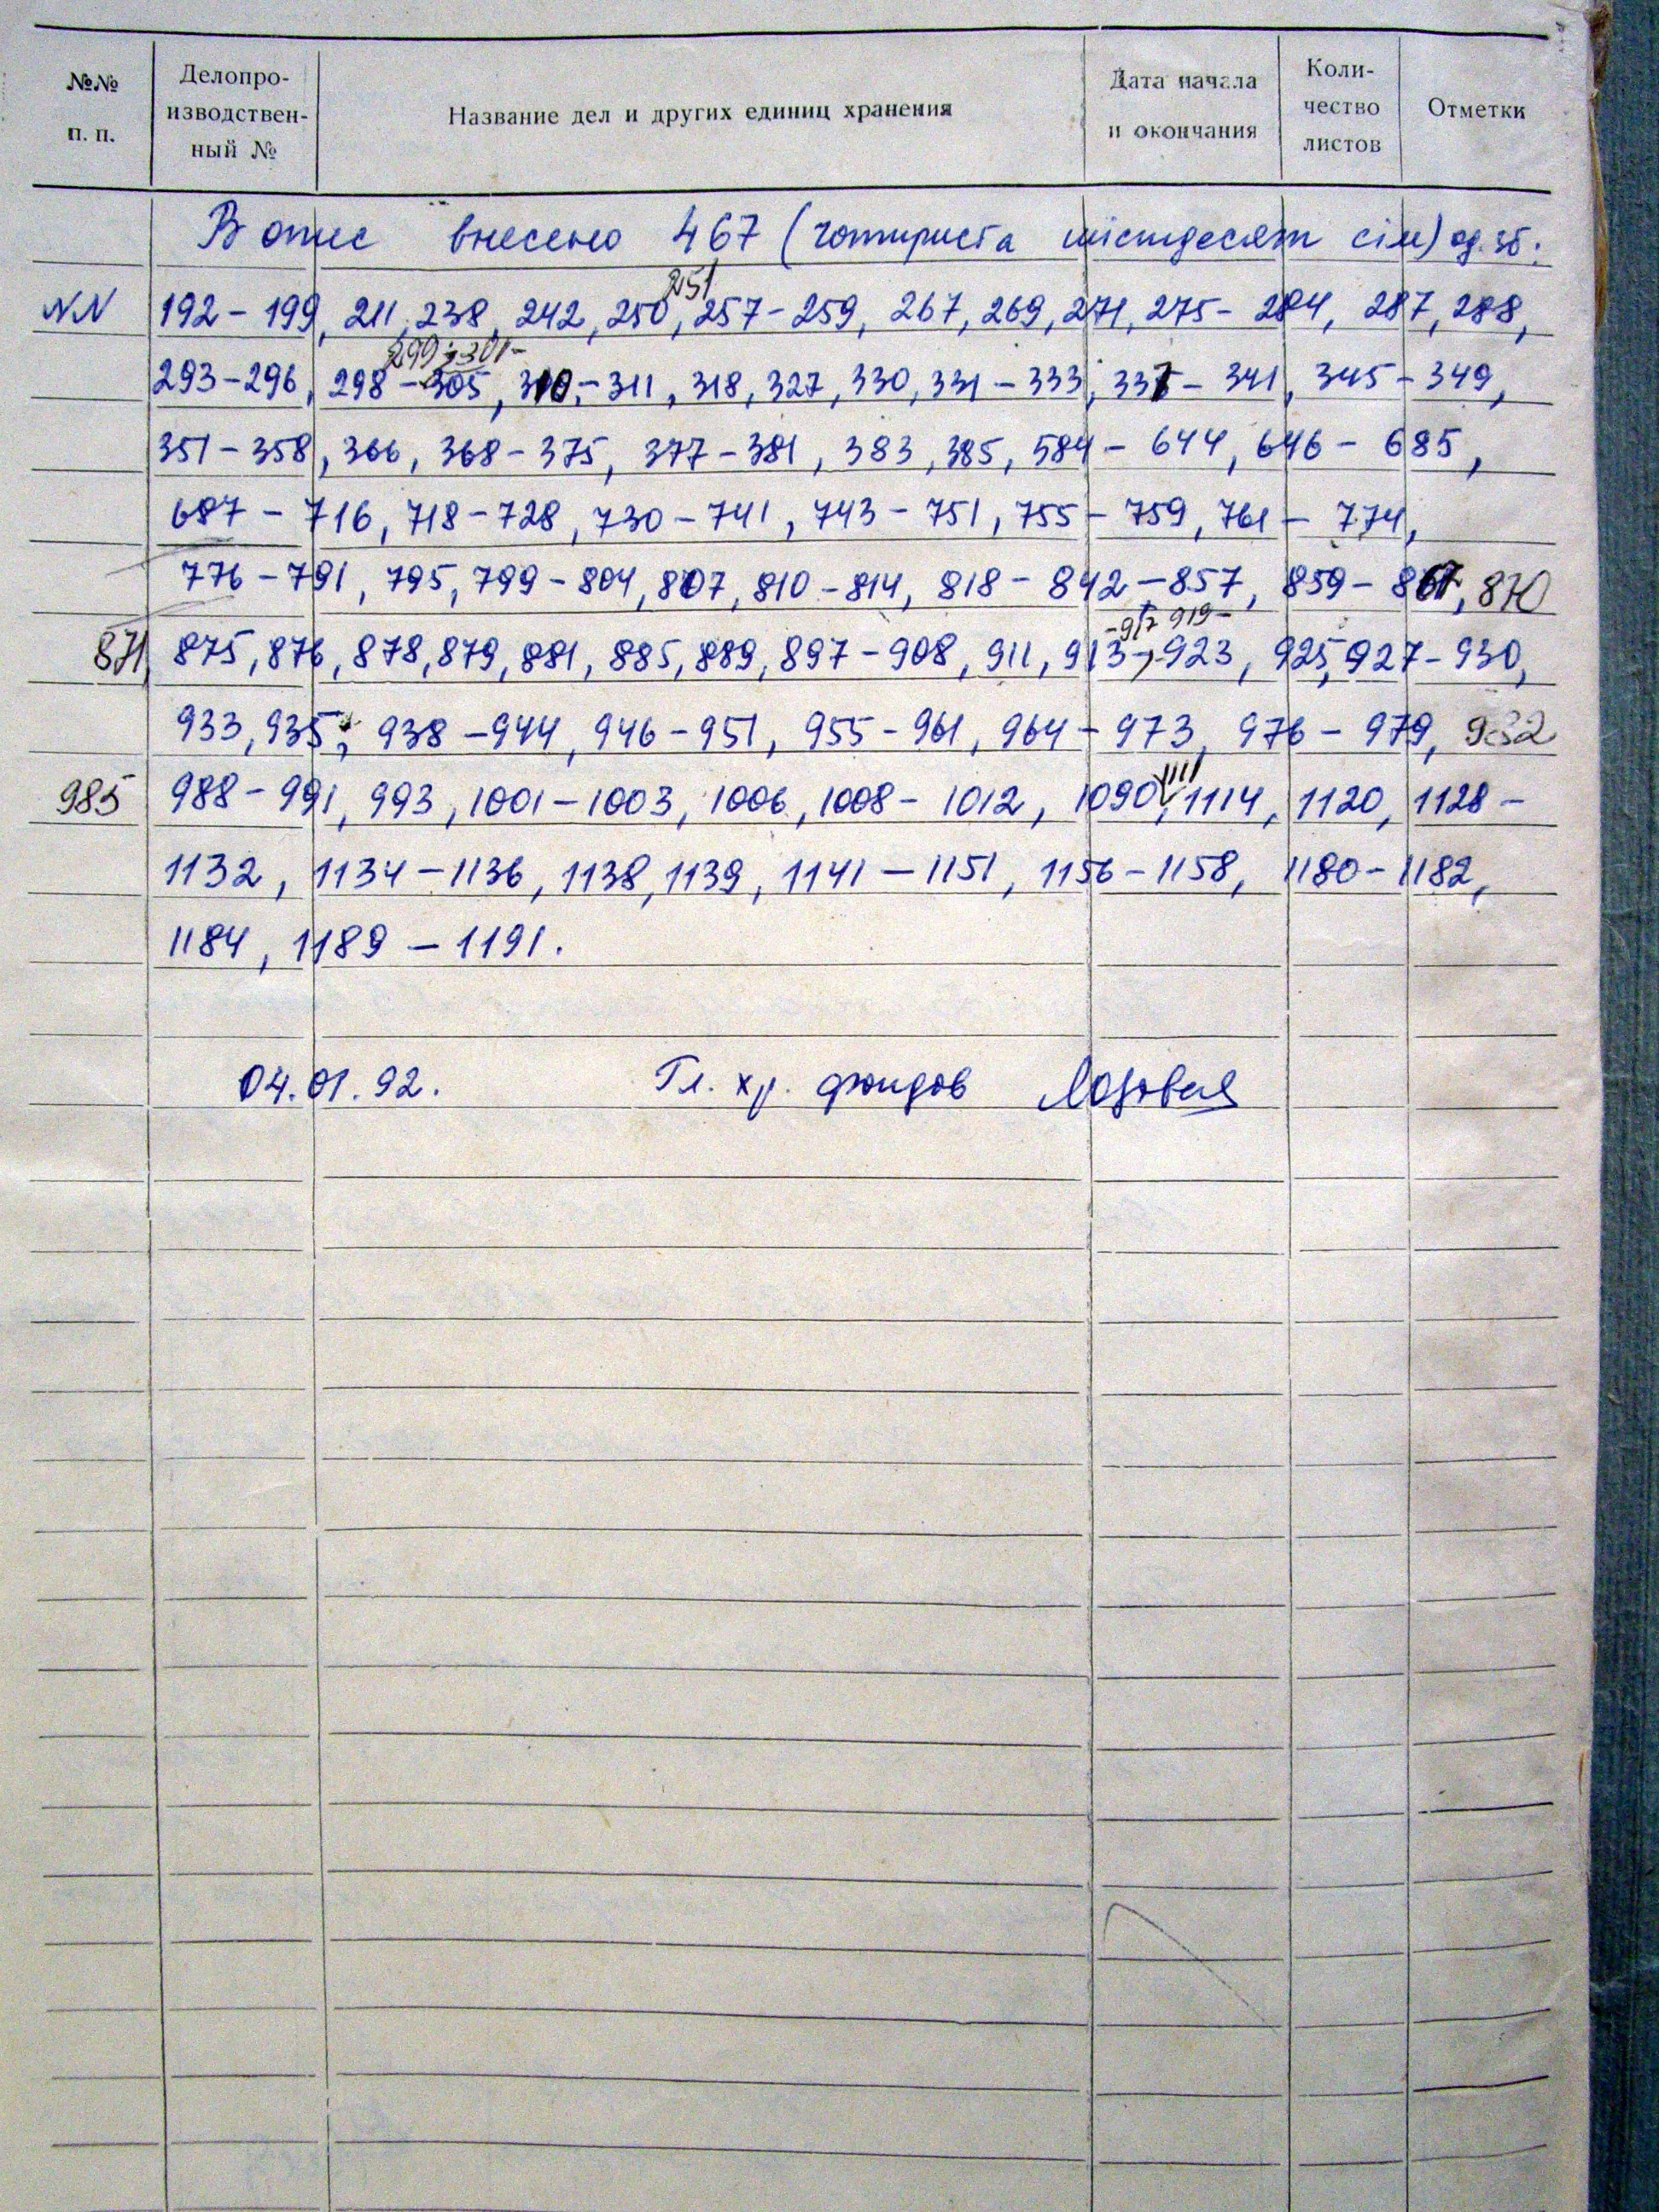 №№ п. п.
Делопро-
изводствен-
ный №
Название дел и других единиц хранения
Дата начала
и окончания
Коли-
чество
листов
Отметки
В опис внесено 467 (чотириста шістдесят сім) од. зб.:
251
NN 192 – 199, 211, 238, 242, 250, 257 – 259, 267, 269, 271, 275 – 284, 287, 288,
299; 301 –
293 – 296, 298 – 305, 310, – 311, 318, 327, 330, 331 – 333, 337 – 341, 345 – 349,
351 – 358, 366, 368 – 375, 377 – 381, 383, 385, 584 – 644, 646 – 685,
687 – 716, 718 – 728, 730 – 741, 743 – 751, 755 – 759, 761 – 774,
776 – 791, 795, 799 – 804, 807, 810 – 814, 818 – 842 – 857, 859 – 867, 870
– 917 919 –
871, 875, 876, 878, 879, 881, 885, 889, 897 – 908, 911, 913 –, 923, 925, 927 – 930,
933, 935, 938 – 944, 946 – 951, 955 – 961, 964 – 973, 976 – 979, 982
1111
985 988 – 991, 993, 1001 – 1003, 1006, 1008 – 1012, 1090, 1114, 1120, 1128 –
1132, 1134 – 1136, 1138, 1139, 1141 – 1151, 1156 – 1158, 1180 – 1182,
1184, 1189 – 1191.
04.01.92. Гл. хр. фондов Лозовая